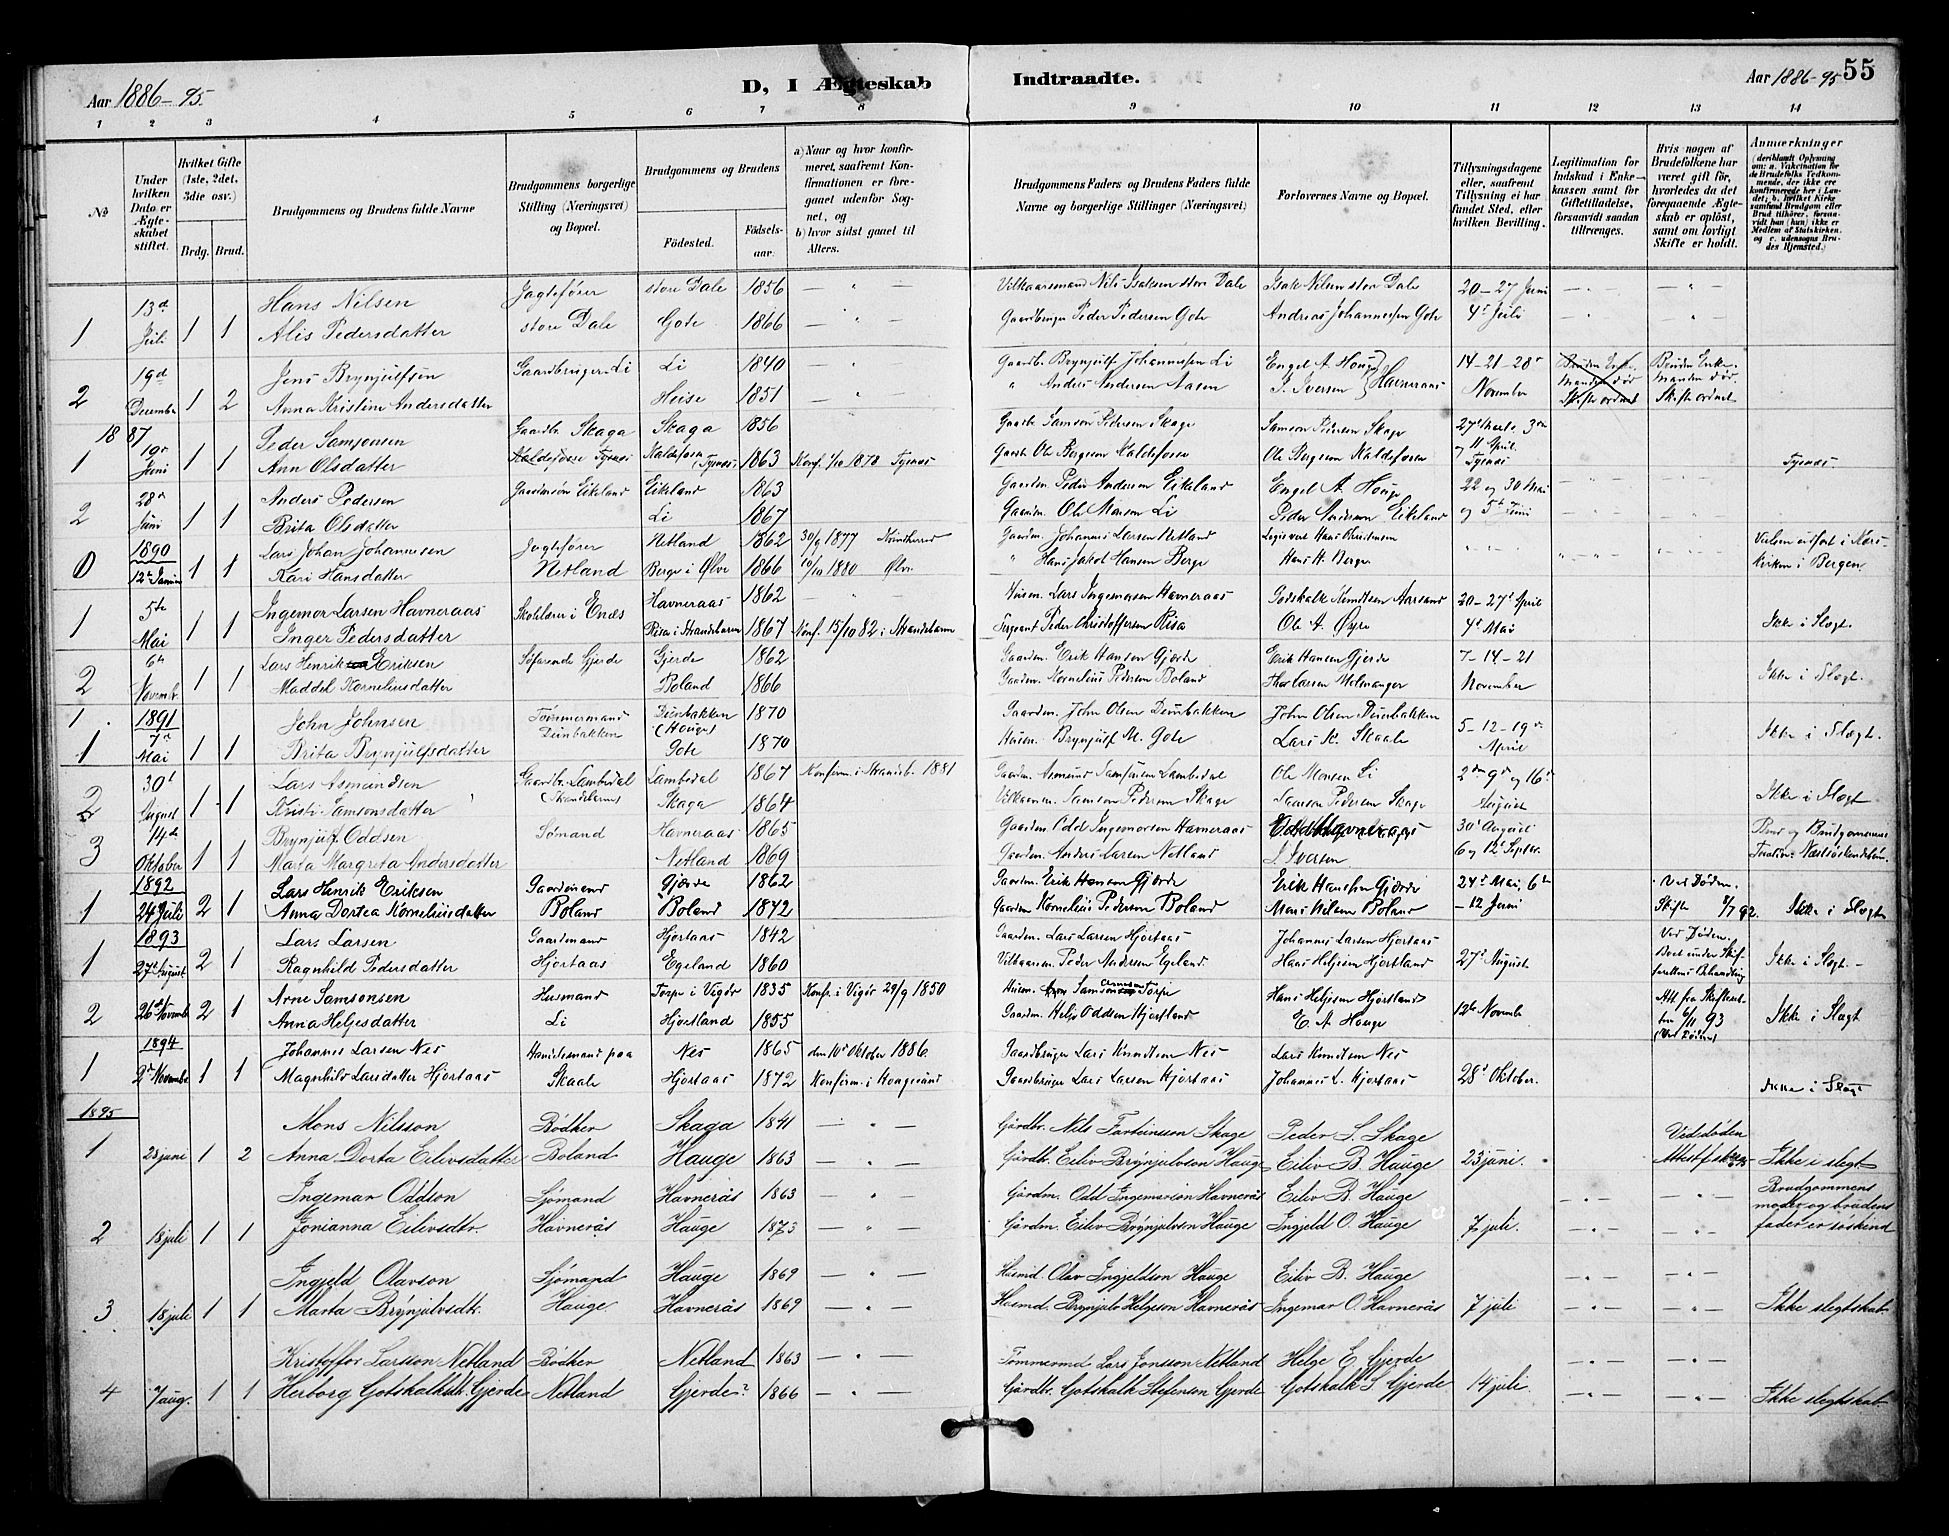 Aar 1886-95. D, I Ægteskab Indtraadte. Aar 1886-95 55
1 2 3 4 5 6 7 8 9 10 11 12 13 14
№
Under hvilken Dato er Ægteskabet stiftet.
Hvilket Gifte (1ste, 2det, 3die osv.)
Brdg. Brud.
Brudgommens og Brudens fulde Navne
Brudgommens borgerlige Stilling (Næringsvei) og Bopæl.
Brudgommens og Brudens
Fødested. Fødselsaar.
a) Naar og hvor konfirmeret, saafremt Konfirmationen er foregaaet udenfor Sognet, og
b) hvor sidst gaaet til Alters.
Brudgommens Faders og Brudens Faders fulde Navne og borgerlige Stillinger (Næringsvei)
Forlovernes Navne og Bopæl.
Tillysningsdagene eller, saafremt Tillysning ei har fundet Sted, efter hvilken Bevilling.
Legitimation for Indskud i Enkekassen samt for Giftetilladelse, forsaavidt saadan tiltrænges.
Hvis nogen af Brudefolkene har været gift før, hvorledes da det foregaaende Ægteskab er opløst, samt om lovligt Skifte er holdt.
Anmærkninger (deriblandt Oplysning om: a. Vakcination for de Brudefolks Vedkommende, der ikke ere konfirmerede her i Landet; b. hvilket Kirkesamfund Brudgom eller Brud tilhører, forsaavidt han (hun) ikke er Medlem af Statskirken, og c. udensogns Brudes Hjemsted.)
13d Hans Nilsen Jagtefører store Dale 1856 — " — Vilkaarsmand Nils Isaksen store Dale Isak Nilsen store Dale 20-27 Juni — " — "
1 Juli 1 1 Alis Pedersdatter store Dale Gote 1866 — " — Gaardbruger Peder Pedersen Gote Andreas Johannessen Gote 4d Juli " "
19d Jens Brynjulfsen Gaardbruger Li Li 1840 — " — Gaardb. Brynjulf Johannesen Li Engel A. Houge 14-21-28d Bruden Enke. Bruden Enke.
2 December 1 2 Anna Kristine Andersdatter Heise 1851 — " — " Anders Andersen Aasen I. Iversen Havneraas November Manden død Skifte ordnet Manden død. Skifte ordnet
1887 19d Peder Samsonsen Gaardbr. Skaga Skaga 1856 Gaardb. Samson Pedersen Skage Samson Pedersen Skage 27d Marts, 3die
1 Juni 1 1 Ann Olsdatter Kaldefosse Tysnæs Kaldefosse (Tysnæs) 1863 Konf. 1/10 1878 Tysnæs Gaardb. Ole Bergesen Kaldefosse Ole Bergesen Kaldefossen og 11 April. Tysnæs Tysnæs.
28d Anders Pedersen Gaardmsøn Eikeland Eikeland 1863 Gaardm. Peder Andersen Eikeland Engel A. Houge 22 og 30 Mai
2 Juni 1 1 Brita Olsdatter Li 1867 Gaardm. Ole Monsen Li Peder Andersen Eikeland og 5te Juni
1890 Lars Johan Johannesen Jagtefører Netland 1862 30/9 1877 Kvinherred Gaardm. Johannes Larsen Netland Hans Christensen Vielsen udført i Kors-
0 12te Januar 1 1 Kari Hansdatter Netland Berge i Ølve 1866 10/10 1880 Ølve " Hans Jakob Hansen Berge Hans H. Berge kirken i Bergen.
5te Ingemor Larsen Havneraas Skolelærer i Enæs Havneraas 1862 — " — Husm. Lars Ingemorsen Havneraas Godskalk Knudtsen Aarsand 20-27d April
1 Mai 1 1 Inger Pedersdatter Risa i Strandebarm 1867 Konf. 15/10 82 i Strandebarm Sergeant Peder Christoffersen Risa Ole A. Øyre 4d Mai Ikke i Slægt.
6te Lars Henrik Eriksen Søfarende Gjerde Gjerde 1862 Gaardm. Erik Hansen Gjærde Erik Hansen Gjerde 7-14-21
2 Novembr. 1 1 Maddel Korneliusdatter Boland 1866 Gaardm. Kornelius Pedersen Boland Thor Larsen Melmanger November Ikke i Slægt.
1. 1891 John Johnsen Tømmermand Duinbakken (Houge) 1870 Gaardm. John Olsen Duinbakken John Olsen Duinbakken 5-12-19d
1 7d Mai 1 1 Brita Brynjulfsdatter Duinbakken Gote 1870 Husm. Brynjulf M. Gote Lars K. Skaale April Ikke i Slægt.
30d Lars Asmundsen Gaardbr. Lambedal Lambedal 1867 Konfirm. i Strandeb. 1881 Gaardm. Asmund Samsonsen Lambedal Ole Monsen Li 2den 9d og 16d
2 August 1 1 Kristi Samsonsdatter (Strandebarm) Skaga 1864 Vilkaarsm. Samson Pedersen Skage Samson Pedersen Skage August Ikke i Slægt.
14de Brynjulf Oddsen Sømand Havneraas 1865 Gaardm. Odd Ingemorsen Havneraas 30d August Brud og Brudgommens
3 Oktober 1 1 Marta Margreta Andersdatter Netland 1869 Gaardm. Anders Larsen Netland I. Iversen 6 og 12d Septbr. Forældre Næstsøskendebørn.
1892 Lars Henrik Eriksen Gaardmand Gjærde 1862 Gaardm. Erik Hansen Gjærde Erik Hansen Gjærde 24d Mai, 6te Ved Døden.
1 24 Juli 2 1 Anna Dortea Korneliusdatter Boland Boland 1872 Gaardm. Kornelius Pedersen Boland Mons Nilsen Boland - 12 Juni Skifte 8/7 92. Ikke i Slægt
1893 Lars Larsen Gaardmand Hjortaas 1842 Gaardm. Lars Larsen Hjortaas Johannes Larsen Hjortaas Ved Døden.
1 27d August 2 1 Ragnhild Pedersdatter Hjortaas Egeland 1860 Vilkaarsm. Peder Andersen Egeland Hans Heljesen Hjortland 27d August Boet under Skifterettens Behandling Ikke i Slægt -
Arne Samsonsen Husmand Torpe i Vigør 1835 Konf. i Vigør 29/9 1850 Husm. Samson Arnesen Torpe Hans Heljesen Hjortland Att. fra Skifteret-
2 26d Novemb. 2 1 Anna Heljesdatter Li Hjortland 1855 Gaardm. Helje Oddsen Hjortland E. A. Houge 12te Novemb. ten 6/11 93 (Ved Døden) Ikke i Slægt
1894 Johannes Larsen Nes Handelsmand paa Nes 1865 den 10d Oktober 1886. Gaardbruger Lars Knudtsen Nes Lars Knudtsen Nes
1 2d Novemb. 1 1 Magnhild Larsdatter Hjortaas Skaale Hjortaas 1872 Konfirm. i Kongssund Gaardbruger Lars Larsen Hjortaas Johannes L. Hjortaas 28d Oktober. Ikke i Slægt
1895 Mons Nilsson Bødker Skaga 1841 — " — Gårdbr. Nils Torteinsson Skage Peder S. Skage Ved døden
1 23 juni 1 2 Anna Dorta Eilivsdatter Boland Hauge 1863 — " — Gårdbr. Eiliv Brynjulvson Hauge Eiliv B. Hauge 23 juni. Attest f. Ikke i slegt
Ingemar Oddson Sjömand Havnerås 1863 — " — Gårdm. Odd Ingemarson Havnerås Eiliv B. Hauge — " — — " — Brudgommens
2 18 juli 1 1 Jonianna Eilivsdtr. Havnerås Hauge 1873 — " — Gårdm. Eiliv Brynjulvson Hauge Ingjeld O. Hauge 7 juli. — " — — " — moder og brudens fader er søskend
Ingjeld Olavson Sjømand Hauge 1869 — " — Husmd. Olav Ingjeldson Hauge Eiliv B. Hauge — " — — " —
3 18 juli 1 1 Marta Brynjulvsdtr. Hauge Havnerås 1869 — " — Husmd. Brynjulv Helgeson Havnerås Ingemar O. Havnerås 7 juli — " — — " — Ikke slegtskab.
Kristoffor Larsson Netland Bødker Netland 1863 — " — Tømmermd. Lars Jonsson Netland Helge E. Gjerde — " — — " —
4 7 aug. 1 1 Herborg Gotskalksdtr. Gjerde Netland Gjerde? 1866 — " — Gårdbr. Gotskalk Stefenson Gjerde Gotskalk S. Gjerde 14 juli — " — — " — Ikke slegtskab.